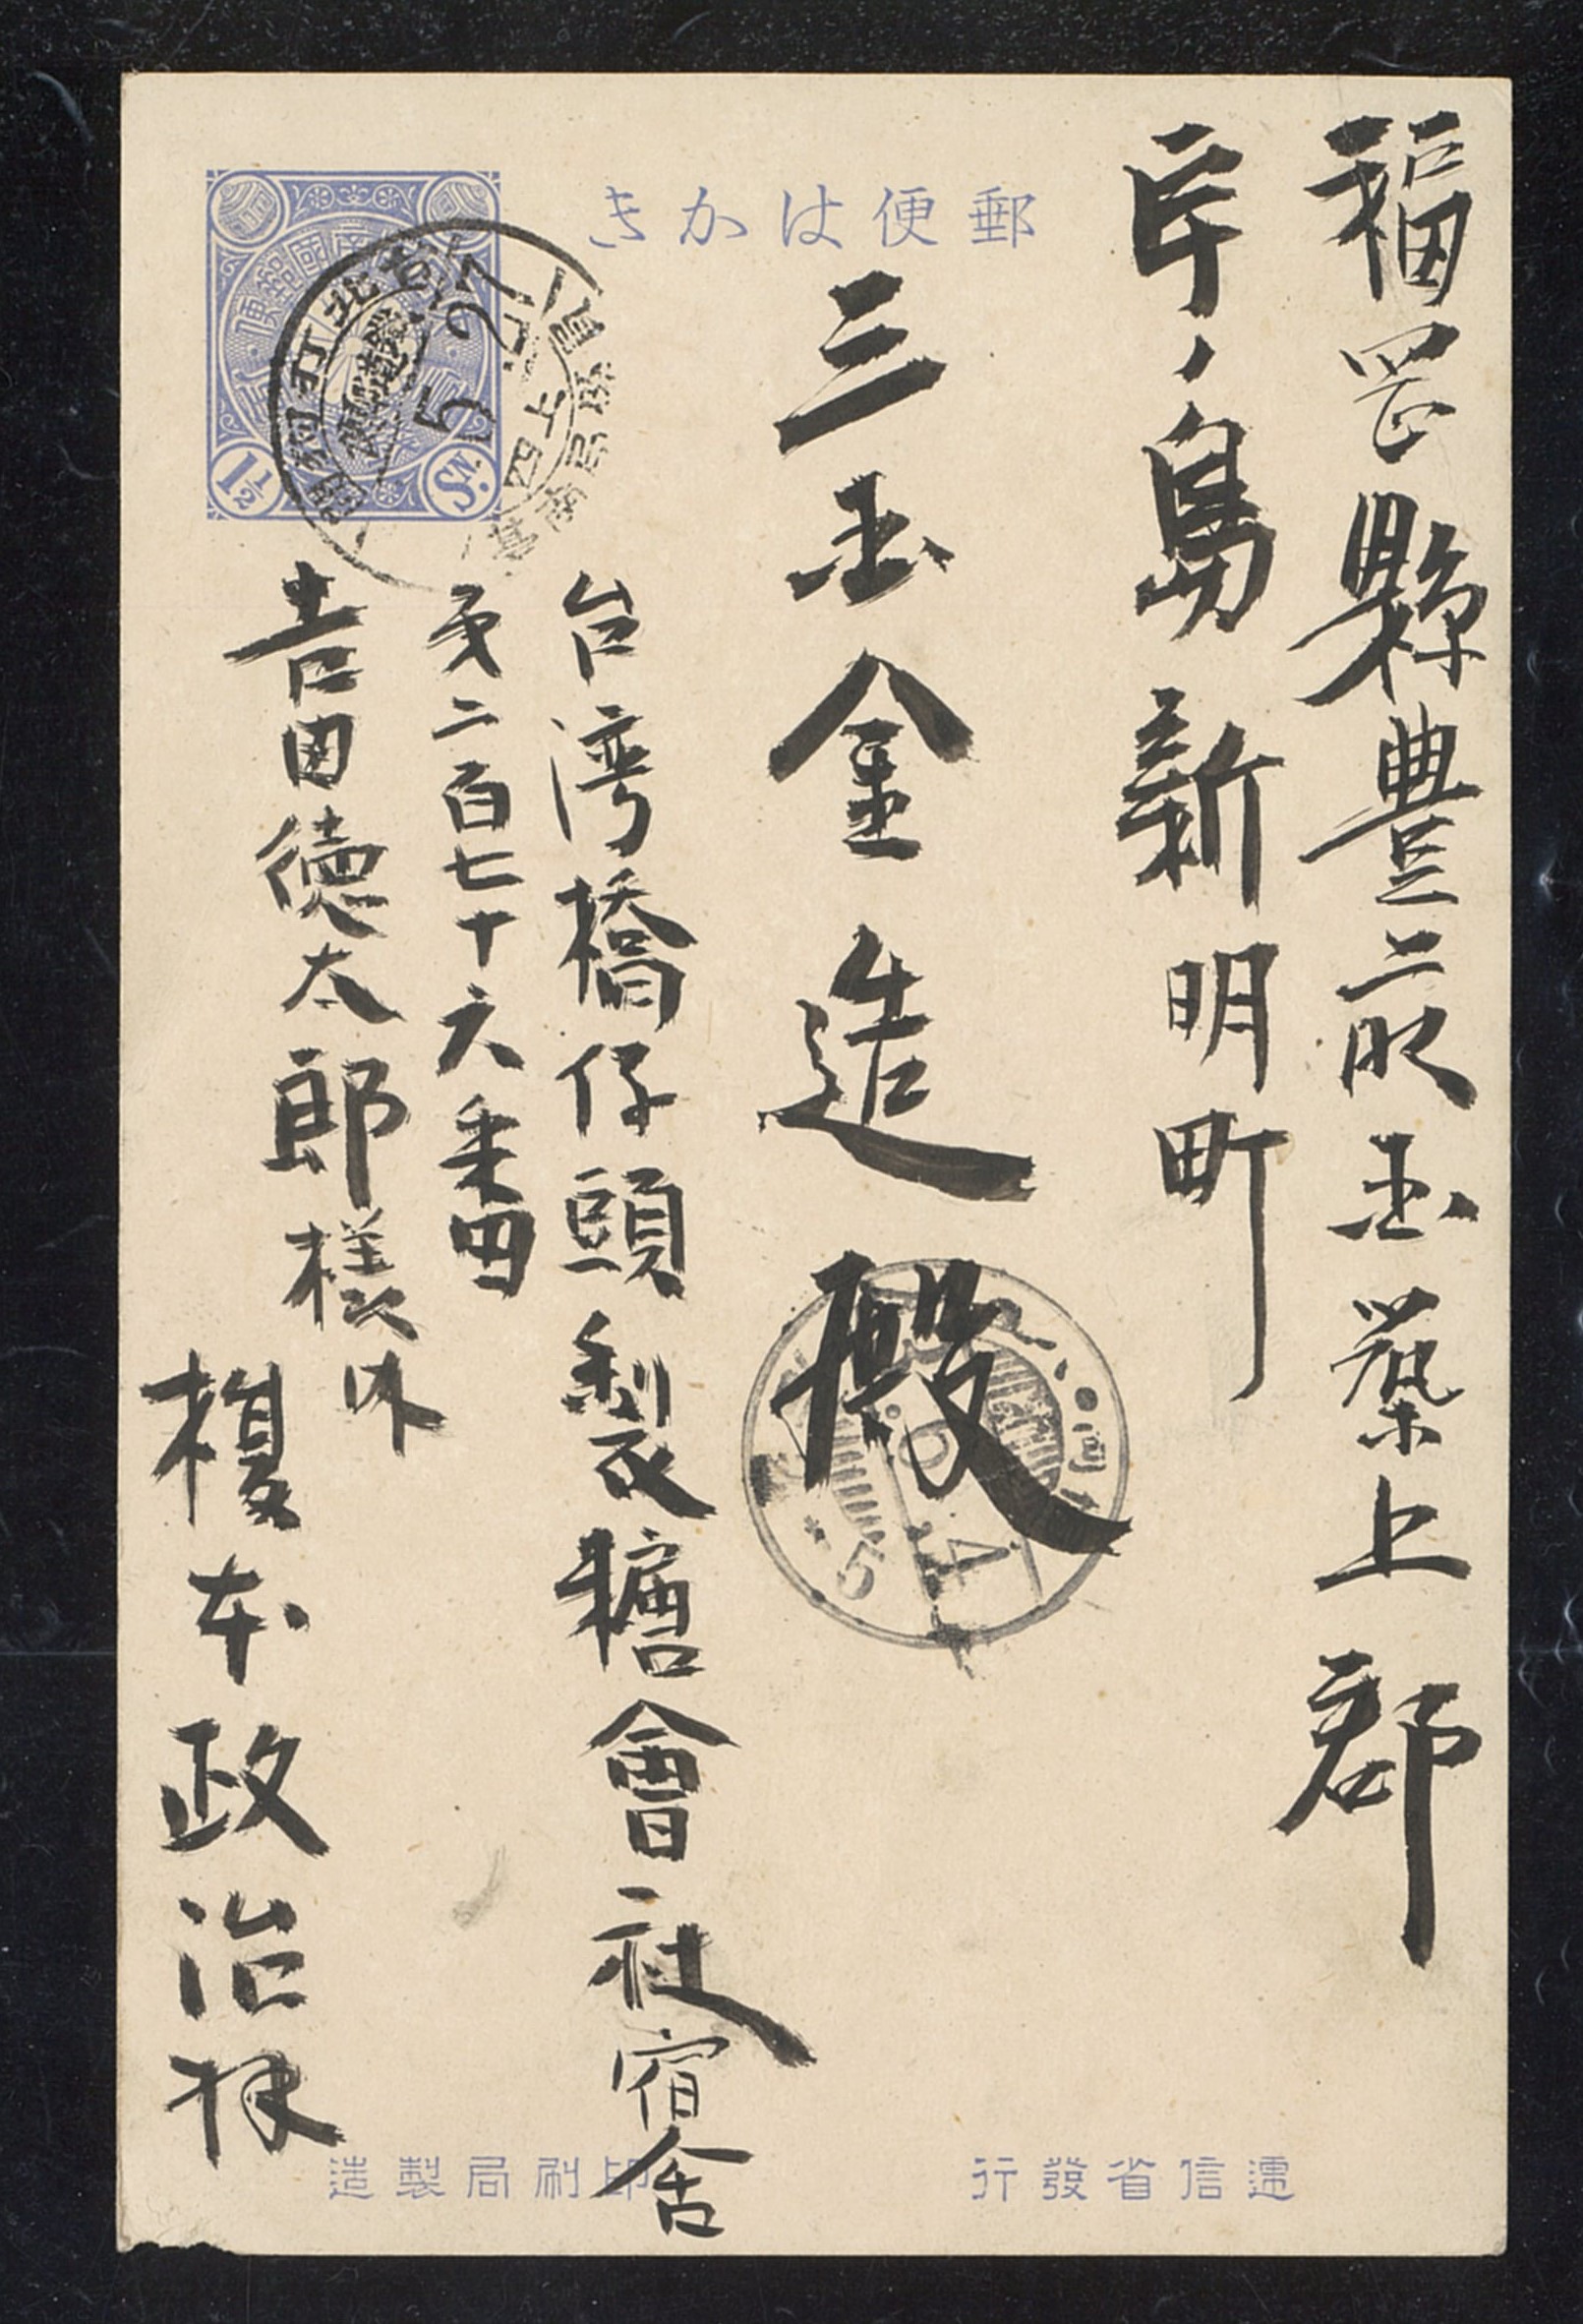 郵便はかき
福岡縣豊前国築上郡
宇ノ島新明町
三玉金造殿
台湾橋仔頭製糖會社宿舎
第二百七十六 四
吉田徳太郎様
榎本政治
1½
Sɴ.
27
5
5
逓信省發行
印刷局製造